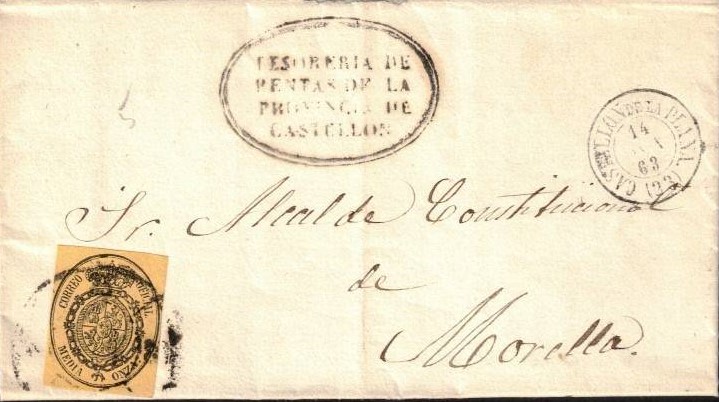 TESORERIA DE
RENTAS DE LA
PROVINCIA DE
CASTELLON
CASTELLON DE LA PLANA
14
63
(23)
Sr. Alcalde Constitucional
de
Morella.
CORREO OFICIAL
MEDIA ONZA